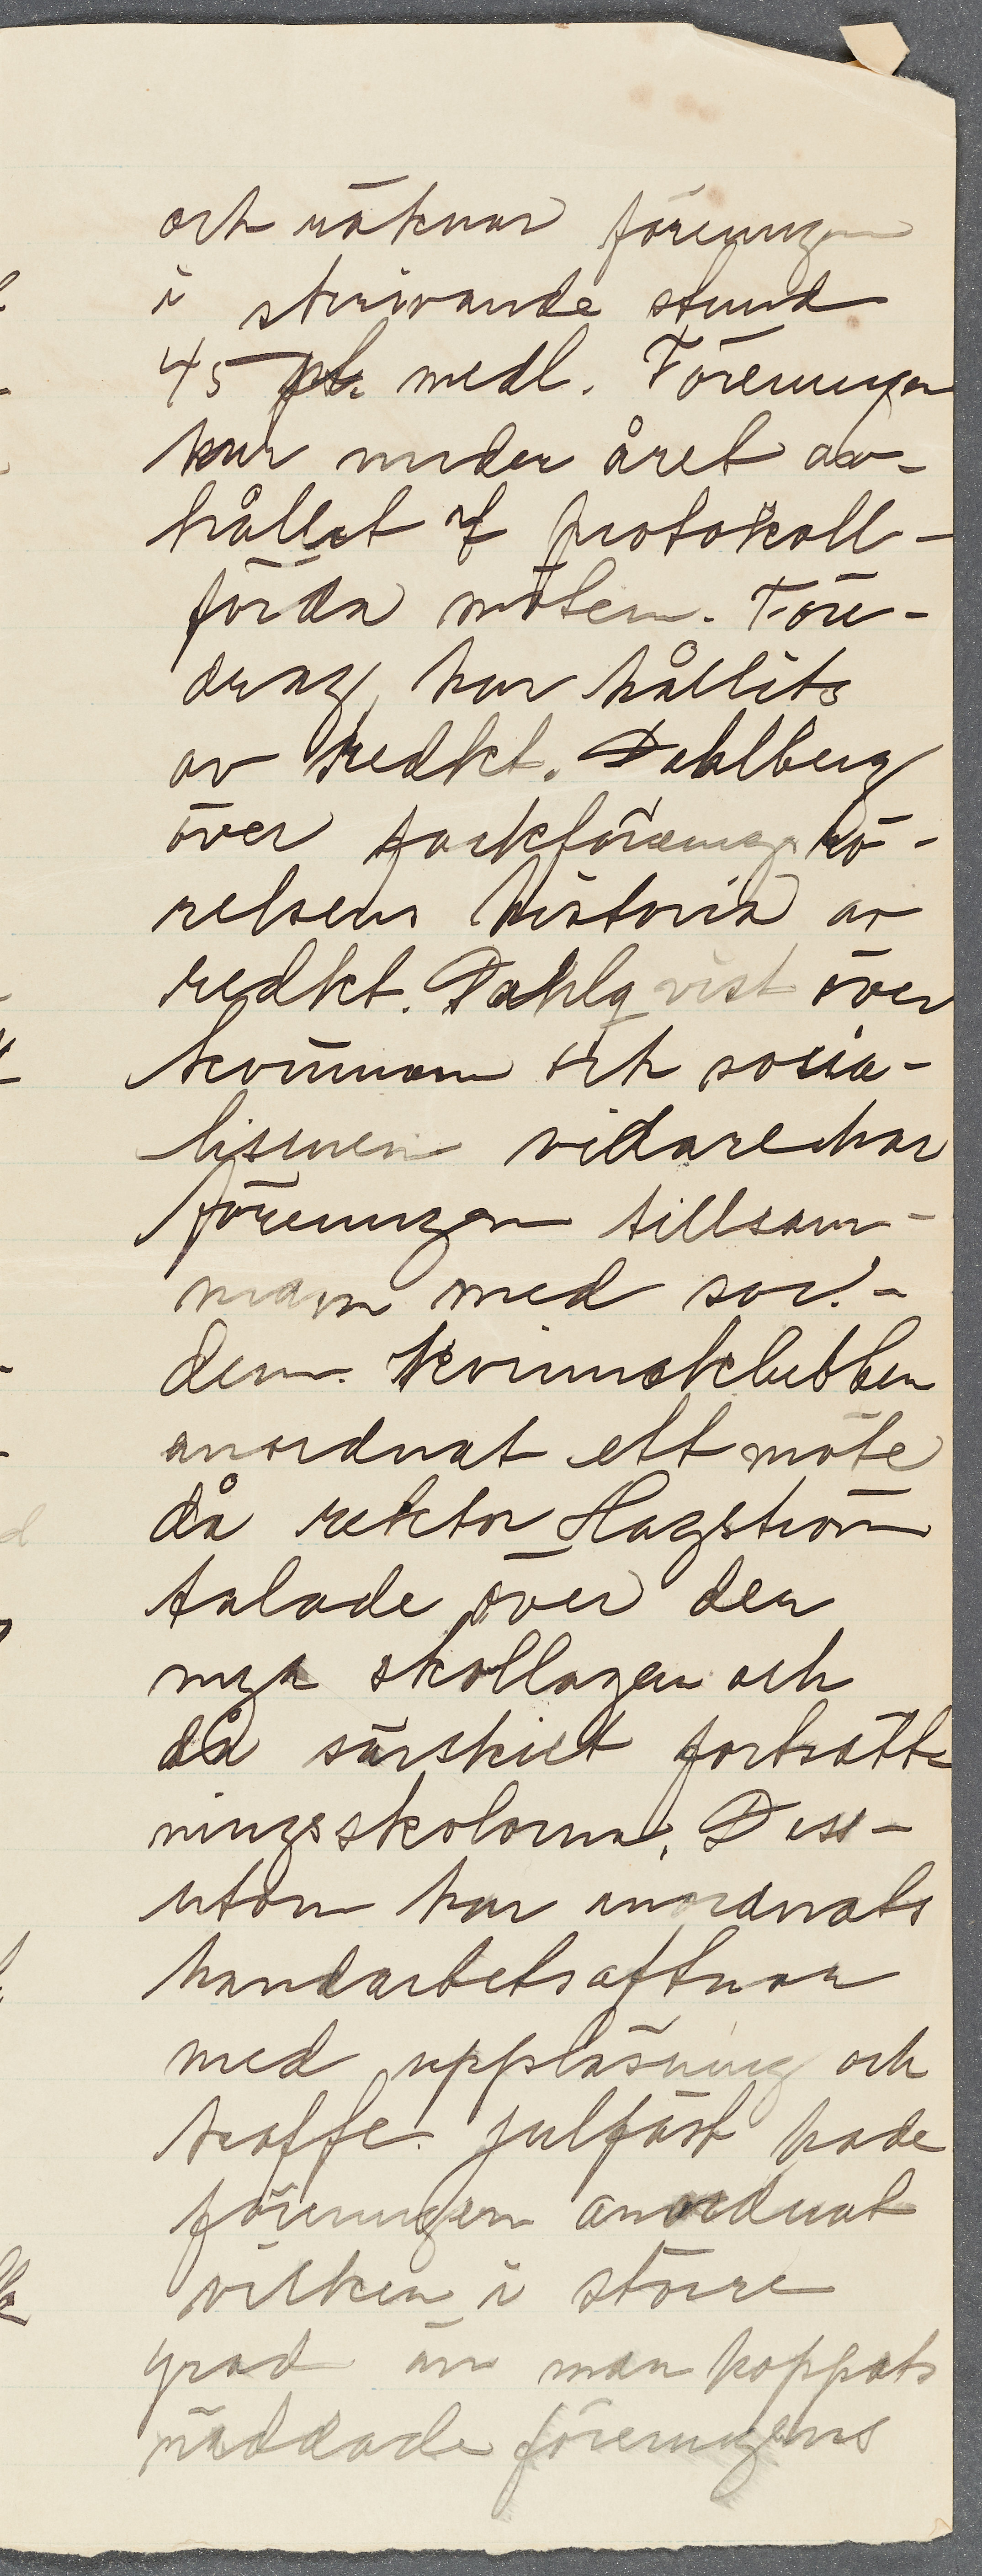 och räknar föreningen
i skrivande stund
45 medl. Föreningen
har under året av-
hållet 7 protokoll-
förda möten. Före-
drag har hållits
av redkt. Dahlberg
över fackföreningsrö-
relsens historia av
redkt. Dahlqvist över
kvinnan och socia-
lismen vidare har
föreningen tillsam-
mam med soc.-
dem. kvinnoklubben
anordnat ett möte
då rektor Hagström
talade över den
nya skollagen och
då särskilt fortsätt-
ningsskolorna. Dess-
utom har anordnats
handarbetsaftnar
med uppläsning och
kaffe. Julfäst hade
föreningen anordnat
vilken i större
grad än man hoppats
räddade föreningens